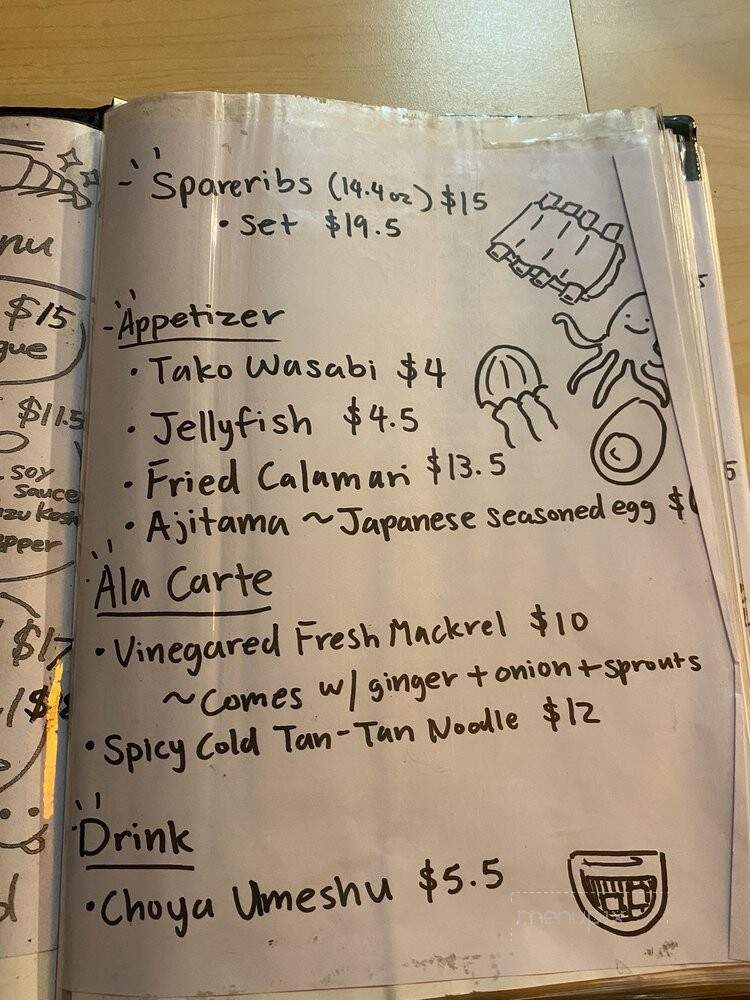 Spareribs (14.4oz) $15
• set $19.5
Appetizer
• Tako Wasabi $4
• Jellyfish $4.5
• Fried Calamari $13.5
• Ajitama ~Japanese seasoned egg $
Ala Carte
• Vinegared Fresh Mackrel $10
~Comes w/ ginger + onion + sprouts
• Spicy Cold Tan-Tan Noodle $12
Drink
• Choya Umeshu $5.5
menupix
nu
$15
gue
$11.5
soy
sauce
zu Kosh
pper
$17